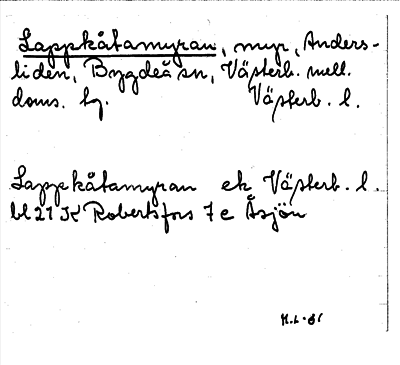 Lappkåtamyran, myr, Anders-
liden, Bygdeå sn, Västerb. mell.
doms. hg. Västerb. l.
Lappkåtamyran ek Västerb. l.
bl 21 K Robertsfors 7 e Åsjön